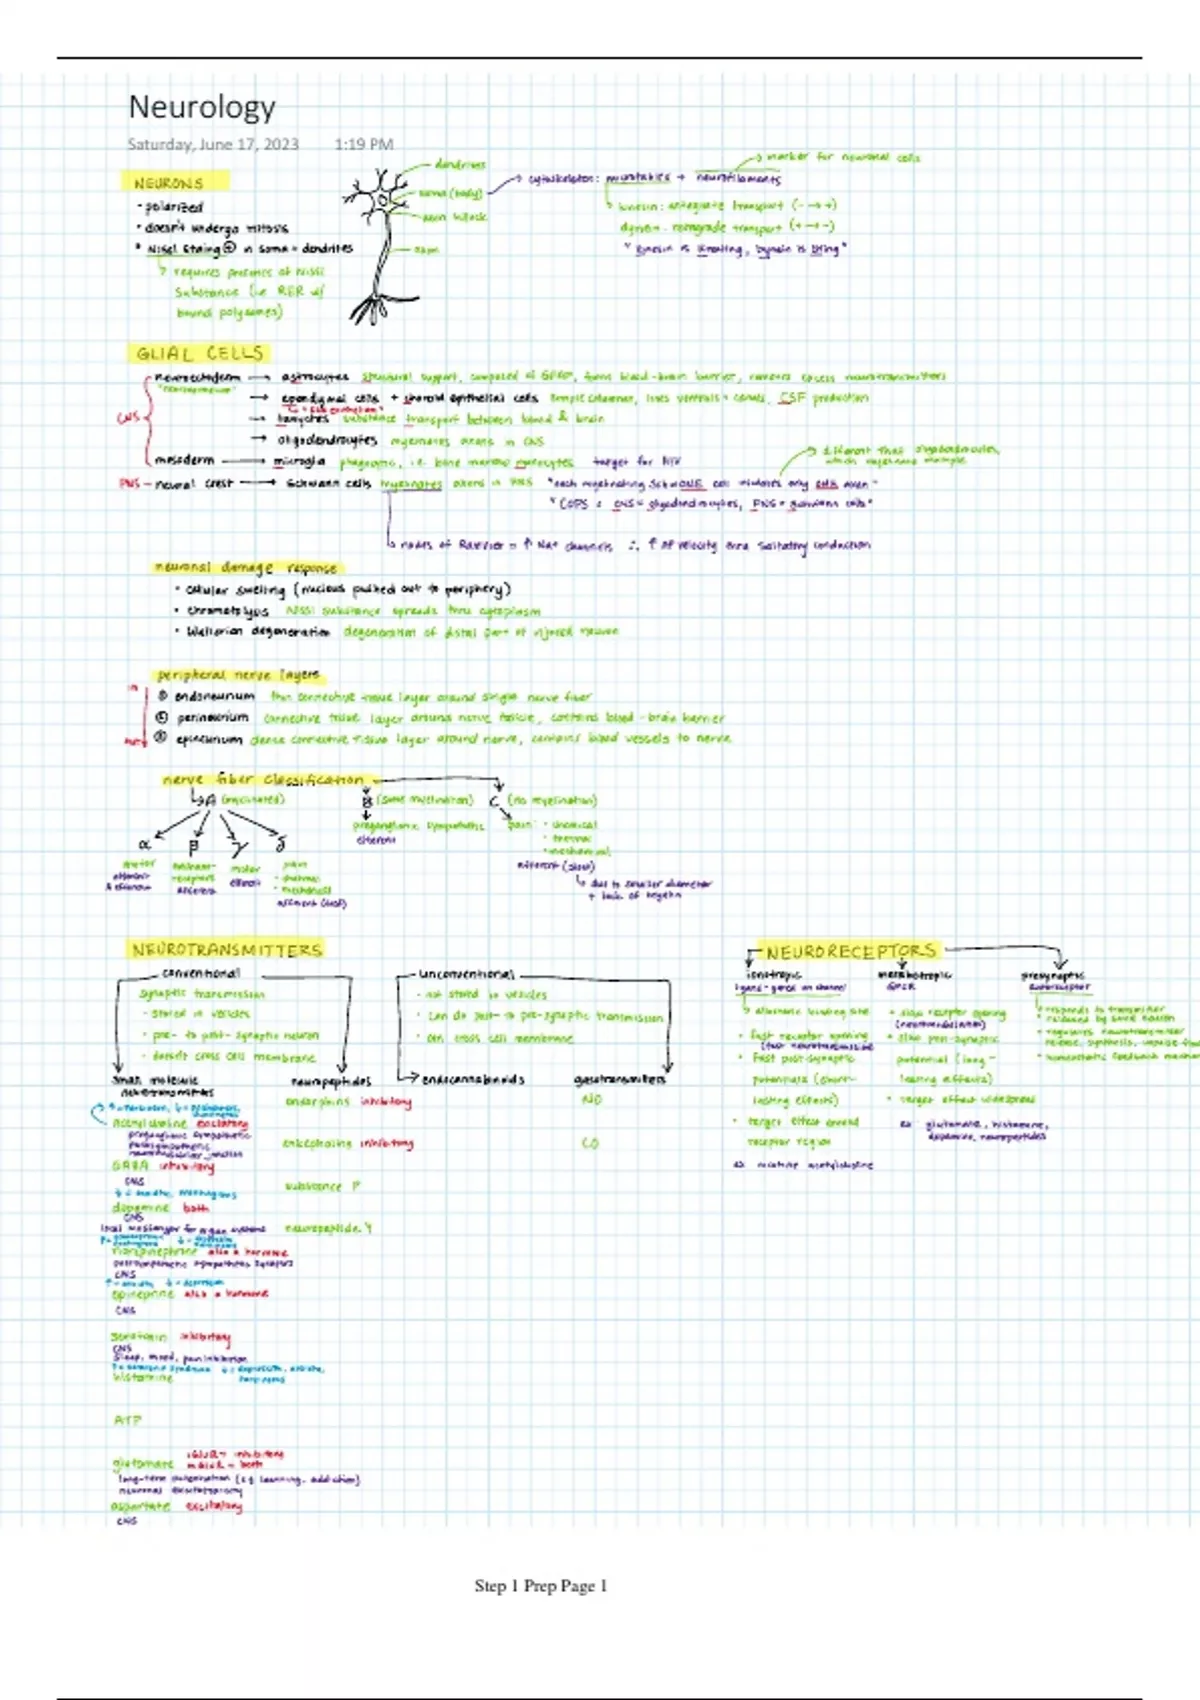 Neurology
Saturday, June 17, 2023 1:19 PM
NEURONS
• polarized
• doesn't undergo mitosis
• Nissl staining ⊕ in soma + dendrites
requires presence of Nissl
substance (i.e. RER w/
bound polysomes)
dendrites
soma (body)
axon hillock
axon
cytoskeleton: + neurofilaments
marker for neuronal cells
kinesin: transport (- → +)
dynein: retrograde transport (+ → -)
GLIAL CELLS
CNS
neuroectoderm → astrocytes structural support, composed of GFAP, forms blood-brain barrier, removes excess neurotransmitters
→ ependymal cells + choroid epithelial cells simple columnar, lines ventricles + canals, CSF production
→ substance transport between blood & brain
→ oligodendrocytes myelinates axons in CNS
mesoderm → microglia phagocytic, i.e. bone marrow target for HIV
different than oligodendrocytes,
which myelinate multiple
PNS - neural crest → Schwann cells myelinates axons in PNS "each myelinating SchwONE cell only ONE axon"
"COPS: CNS = oligodendrocytes, PNS = Schwann cells"
nodes of Ranvier = ↑ Na+ channels ∴ ↑ AP velocity saltatory conduction
neuronal damage response
• cellular swelling (nucleus pushed out to periphery)
• chromatolysis Nissl substance spreads thru cytoplasm
• Wallerian degeneration degeneration of distal part of injured neuron
peripheral nerve layers
in
① endoneurium thin connective tissue layer around single nerve fiber
② perineurium connective tissue layer around nerve fascicle, contains blood-brain barrier
③ epineurium dense connective tissue layer around nerve, contains blood vessels to nerve
out
nerve fiber classification
A (myelinated) B (some myelination) C (no myelination)
preganglionic sympathetic
efferent
pain • chemical
• thermal
• mechanical
afferent (slow)
due to smaller diameter
+ lack of myelin
α β γ δ
motor
afferent
& efferent
afferent
motor
efferent
pain
• thermal
• mechanical
afferent (fast)
NEUROTRANSMITTERS
conventional
synaptic transmission
- stored in vesicles
- pre- to post-synaptic neuron
- doesn't cross cell membrane
unconventional
• not stored in vesicles
• can do post- to pre-synaptic transmission
• can cross cell membrane
small molecule
neurotransmitters
neuropeptides
endocannabinoids
gasotransmitters
acetylcholine excitatory
preganglionic sympathetic
parasympathetic
neuromuscular junction
GABA inhibitory
CNS
dopamine both
CNS
local messenger for organ systems
norepinephrine also a hormone
postsynaptic sympathetic synapses
CNS
epinephrine also a hormone
CNS
serotonin inhibitory
CNS
sleep, mood, pain inhibition
↑ = serotonin syndrome ↓ = depression, anxiety,
histamine
ATP
glutamate iGluR = inhibitory
mGluR = both
long-term potentiation (e.g. learning, addiction)
neuronal excitotoxicity
aspartate excitatory
CNS
endorphins inhibitory
enkephalins inhibitory
substance P
neuropeptide Y
NO
CO
NEURORECEPTORS
ionotropic
ligand-gated ion channel
• fast receptor opening
• fast post-synaptic
potentials (short-
lasting effects)
• target effect around
receptor region
ex nicotinic acetylcholine
metabotropic
GPCR
• slow receptor opening
(neuromodulation)
• slow post-synaptic
potential (long-
lasting effects)
• target effect widespread
ex: glutamate, histamine,
dopamine, neuropeptides
presynaptic
autoreceptor
• responds to transmitter
released by same neuron
• regulates neurotransmitter
release, synthesis,
• homeostatic feedback
Step 1 Prep Page 1